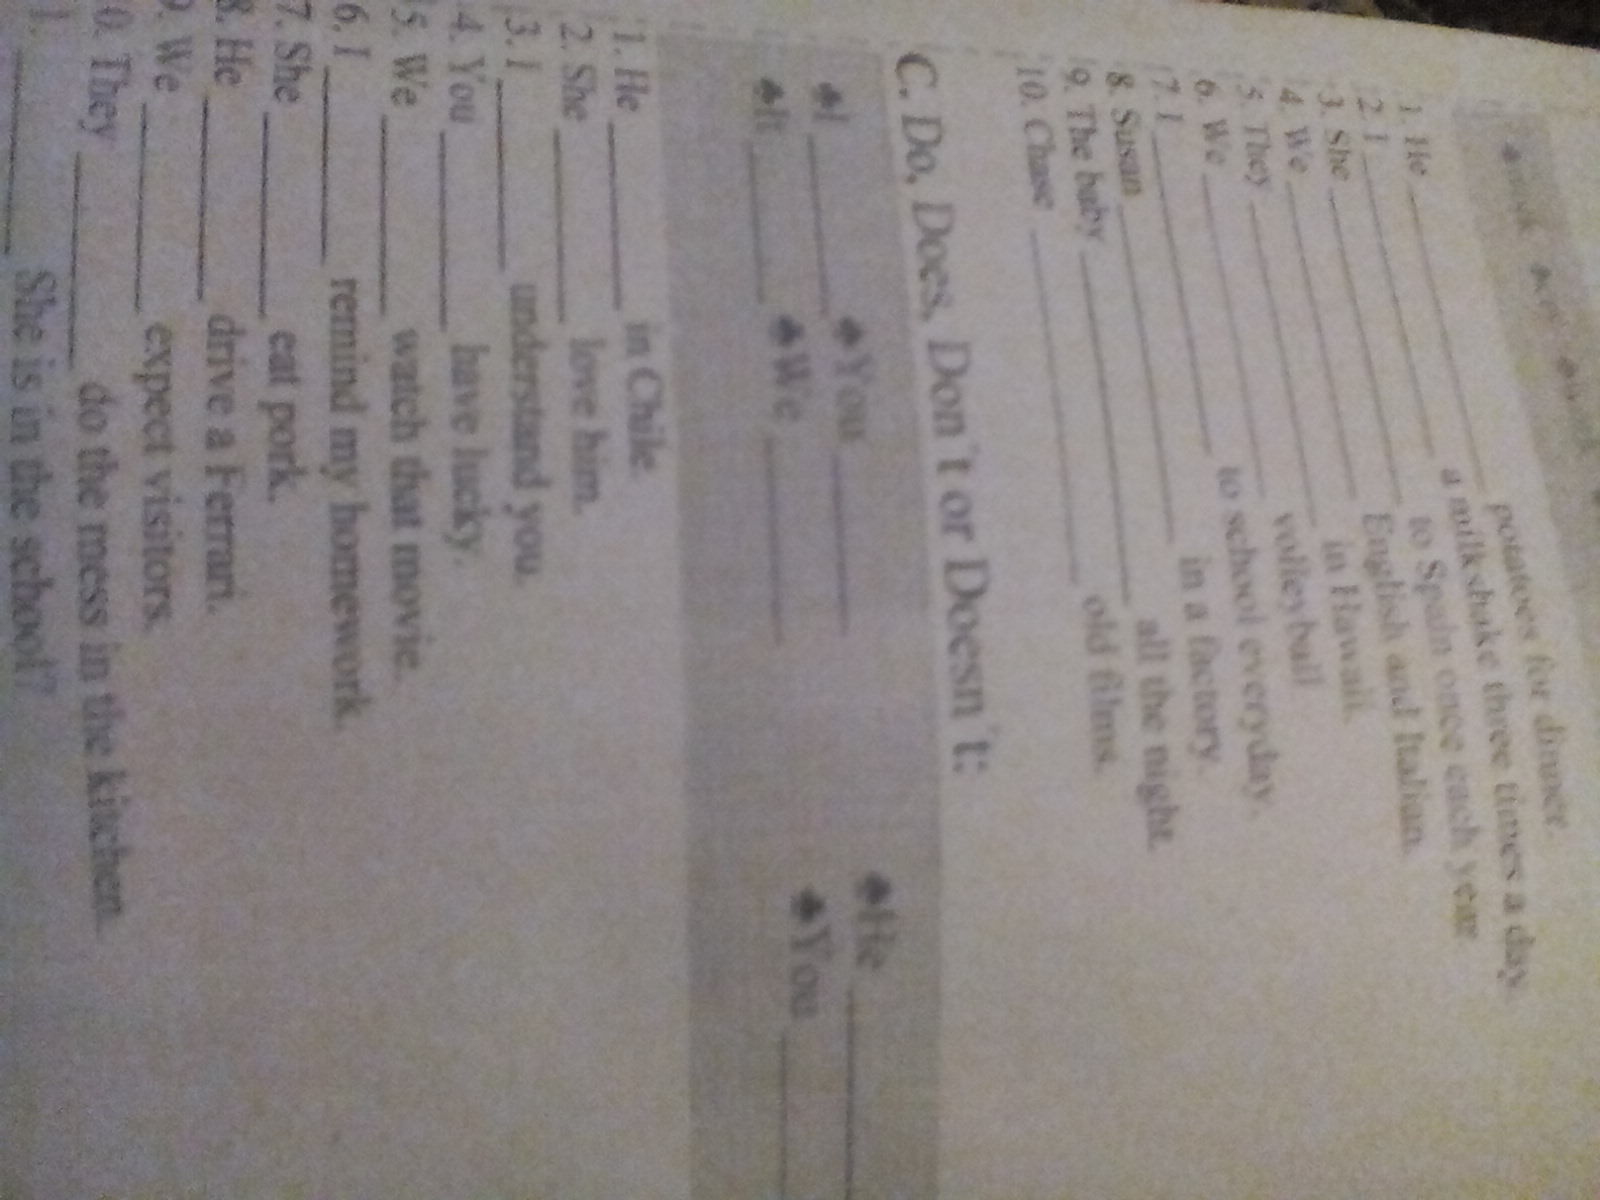 1. He ________ potatoes for dinner.
2. I ________ a milkshake three times a day.
3. She ________ to Spain once each year
4. We ________ English and Italian.
5. They ________ in Hawaii.
6. We ________ volleyball
7. I ________ to school everyday.
8. Susan ________ in a factory.
9. The baby ________ all the night.
10. Chase ________ old films.
C. Do, Does, Don´t or Doesn´t:
♣I ________ ♣You ________ ♣He ________
♣It ________ ♣We ________ ♣You ________
1. He ________ in Chile.
2. She ________ love him.
3. I ________ understand you.
4. You ________ have lucky.
5. We ________ watch that movie.
6. I ________ remind my homework.
7. She ________ eat pork.
8. He ________ drive a Ferrari.
9. We ________ expect visitors.
0. They ________ do the mess in the kitchen.
1. ________ She is in the school?